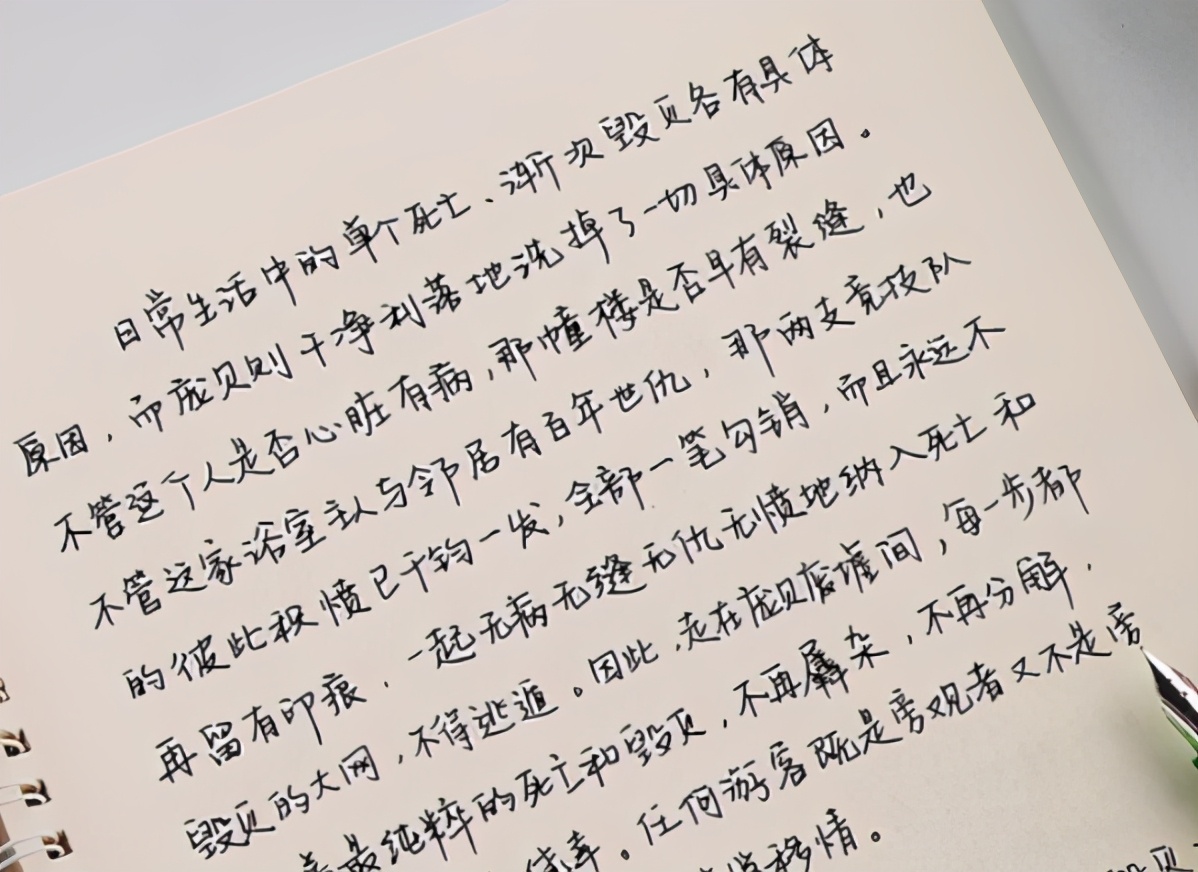 日常生活中的单个死亡、渐次毁灭各有具体
原因，而庞贝则干净利落地洗掉了一切具体原因。
不管这个人是否心脏有病，那幢楼是否早有裂缝，也
不管这家浴室主人与邻居有百年世仇，那两支竞技队
的彼此积愤已千钧一发，全部一笔勾销，而且永远不
再留有印痕，一起无病无缝无仇无愤地纳入死亡和
毁灭的大网，不得逃遁。因此，走在庞贝废墟间，每一步都
着最纯粹的死亡和毁灭，不再羼杂，不再分解，
任何游客既是旁观者又不是旁
移情。